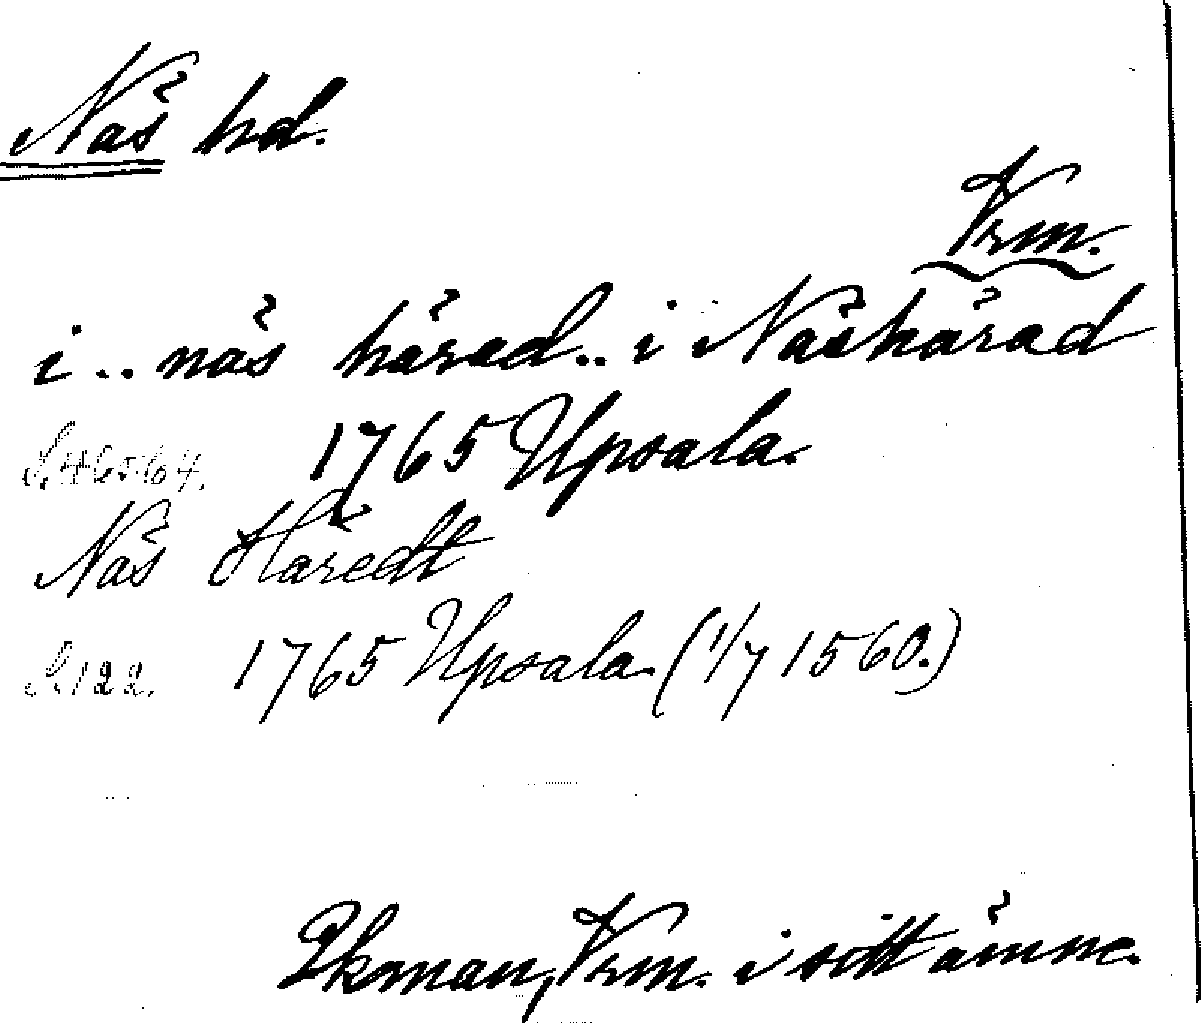 Näs hd.
Vrm.
i .. näs härad .. i Näshärad
1765 Upsala.
Näs Häredt
S. 122. 1765 Upsala. (1/7 1560.)
Ekman, Vrm. i sitt ämne.